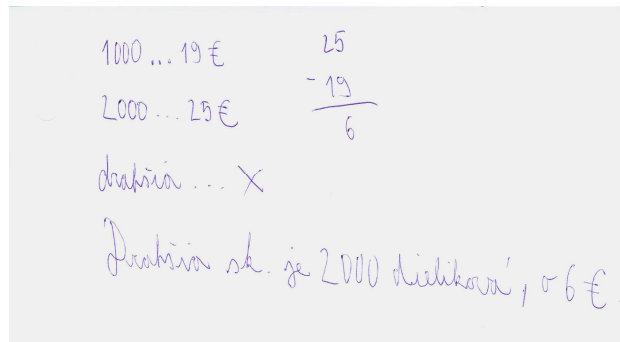 1000 ... 19 €
25
- 19
6
2000 ... 25 €
drahšia ... X
Drahšia sk. je 2000 dieliková, o 6 €.